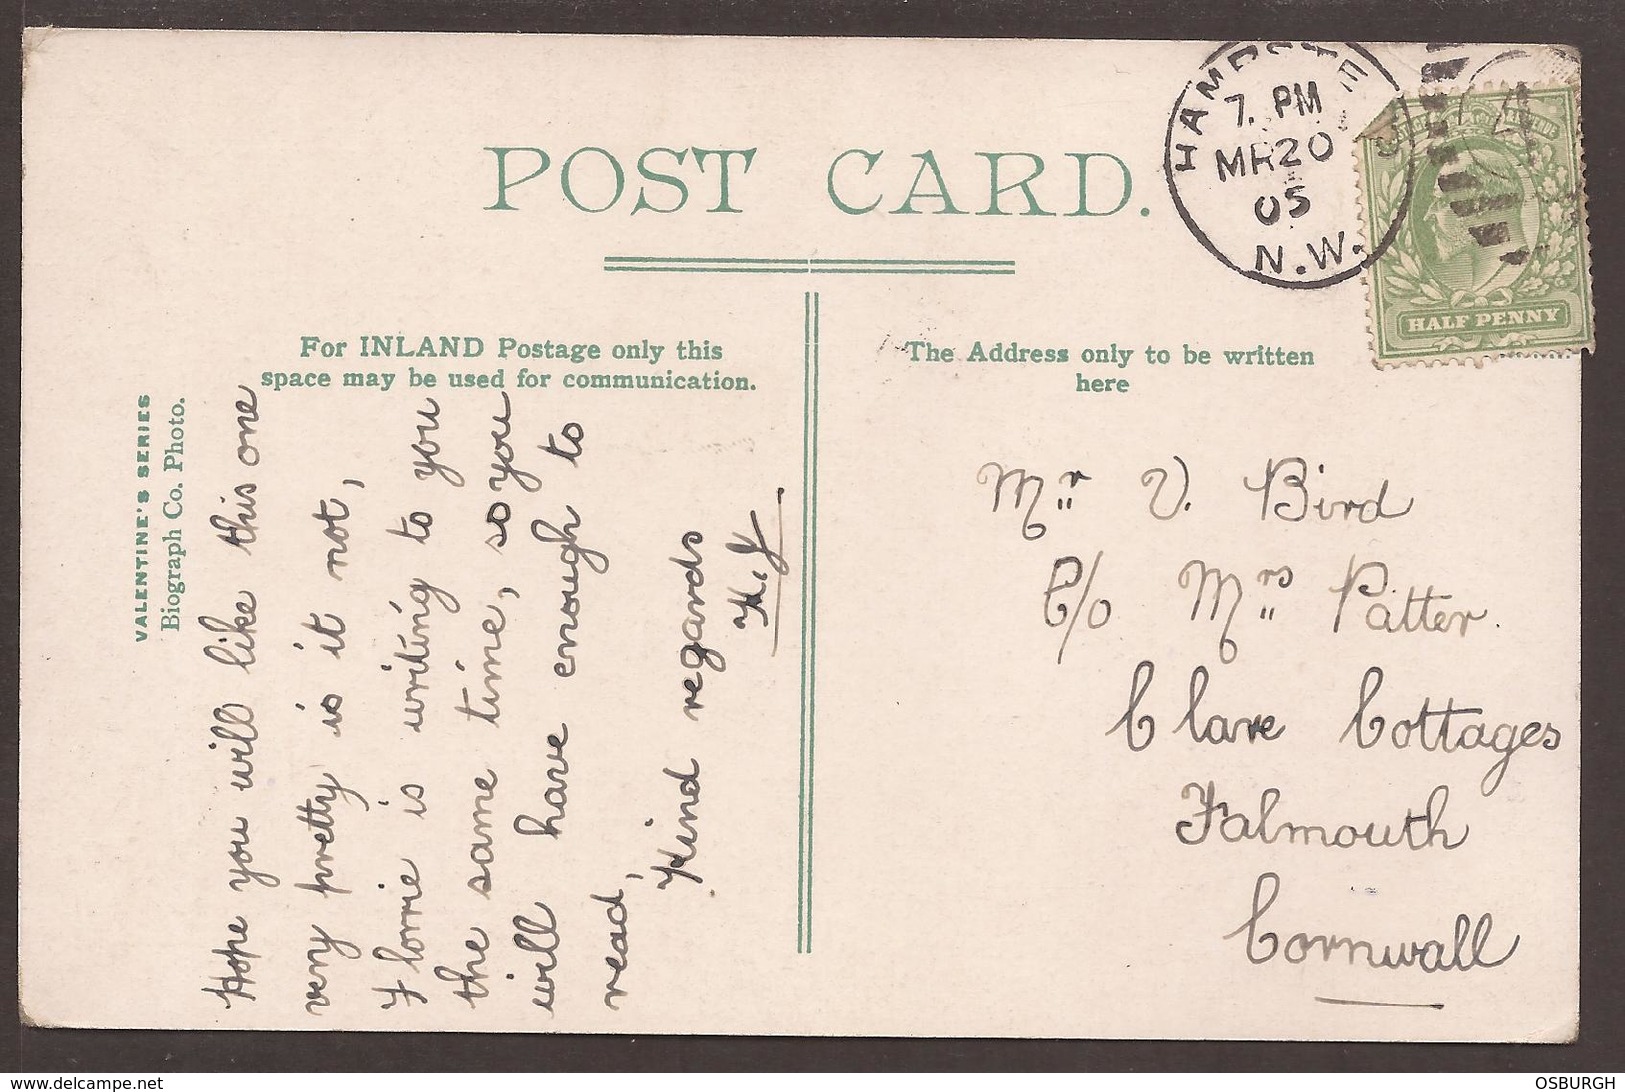 POST CARD.
For INLAND Postage only this
space may be used for communication.
The Address only to be written
here
VALENTINE'S SERIES
Biograph Co. Photo.
7. PM
MR20
05
N.W.
HALF PENNY
Hope you will like this one
very pretty is it not,
Florrie is writing to you
the same time, so you
will have enough to
read,
Kind regards
Mr V. Bird
C/o Mrs Patter.
Clare Cottages
Falmouth
Cornwall
www.delcampe.net
OSBURGH